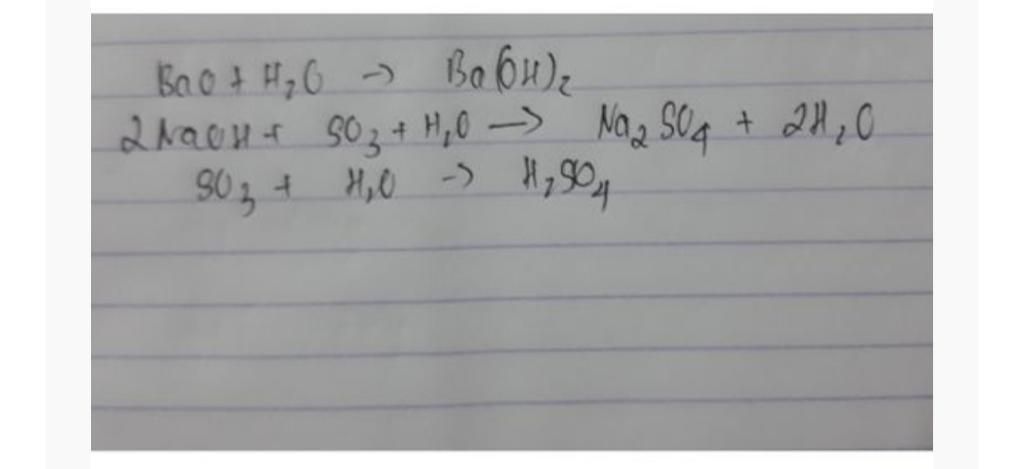 BaO + H₂O → Ba(OH)₂
2NaOH + SO₃ + H₂O → Na₂SO₄ + 2H₂O
SO₃ + H₂O → H₂SO₄